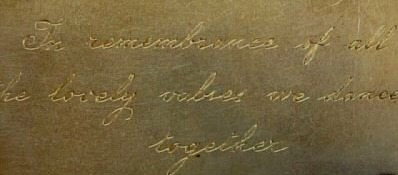 In remembrance of all
he lovely valses we dance
together